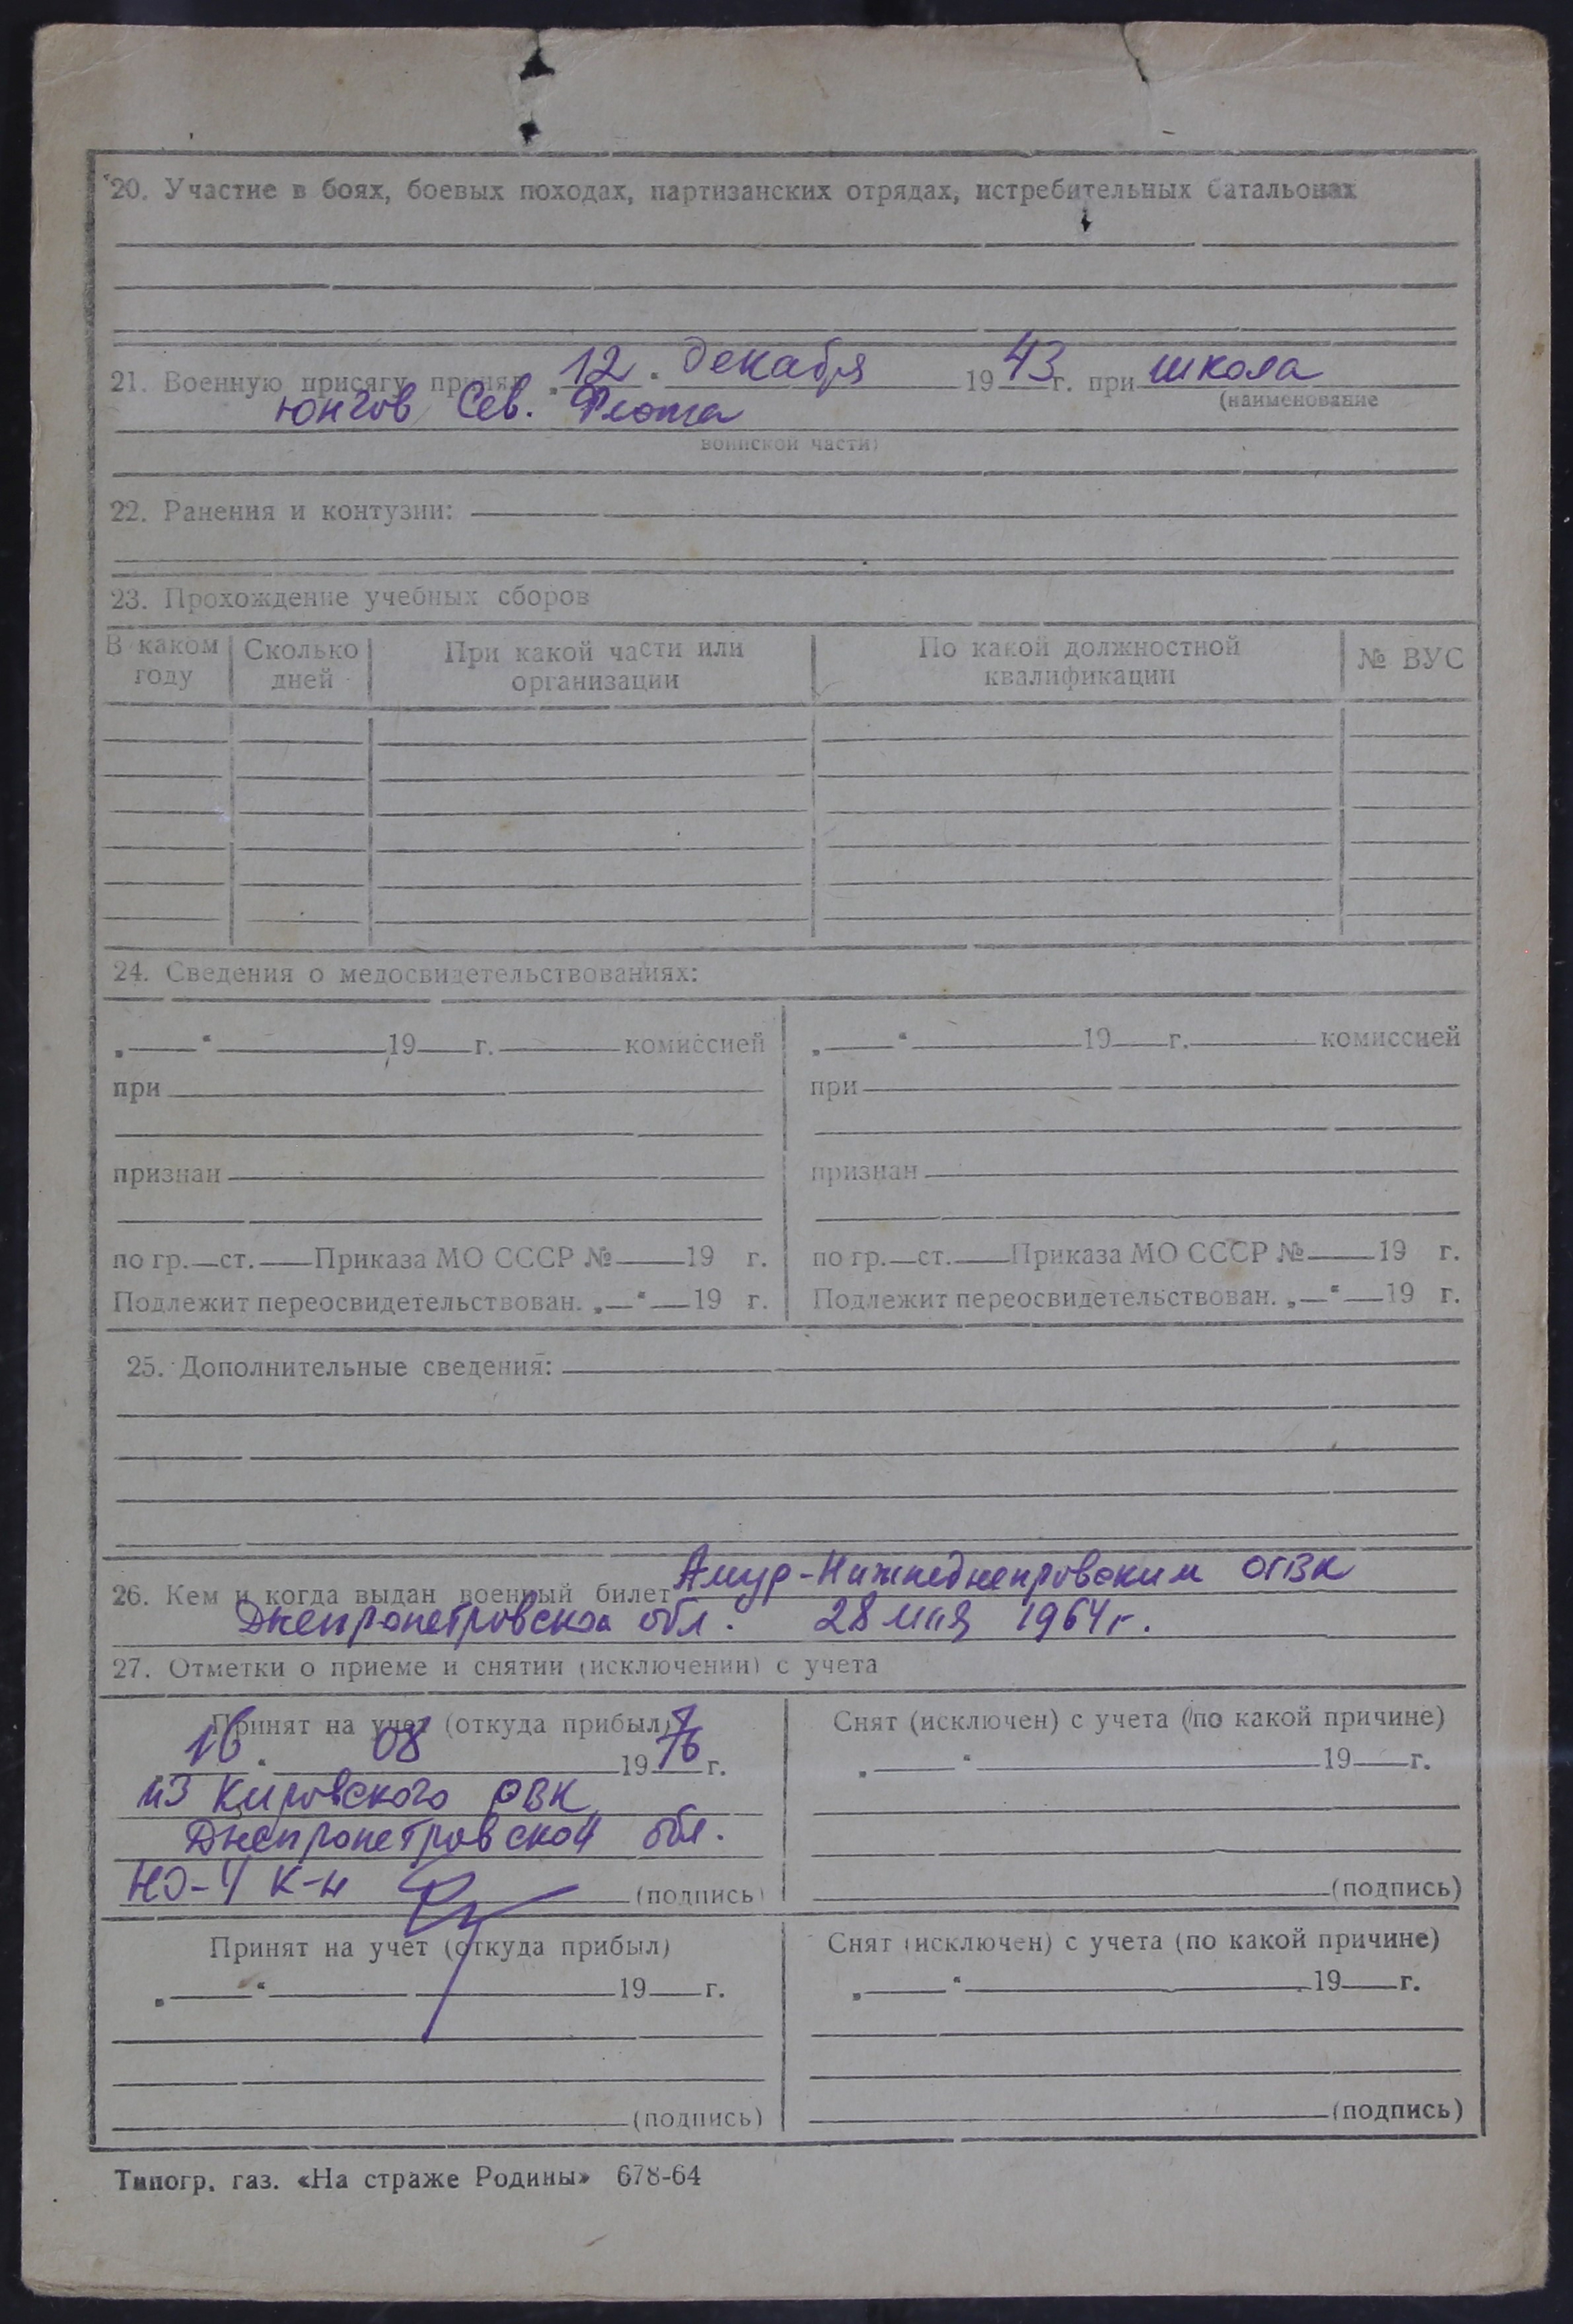 20. Участие в боях, боевых походах, партизанских отрядах, истребительных батальонах
21. Военную присягу принял „12“ декабря 1943 г. при школа
(наименование
юнгов Сев. Флота
воинской части)
22. Ранения и контузии:
23. Прохождение учебных сборов
В каком году | Сколько дней | При какой части или организации | По какой должностной квалификации | № ВУС
24. Сведения о медосвидетельствованиях:
„ “ 19 г. комиссией | „ “ 19 г. комиссией
при | при
признан | признан
по гр. ст. Приказа МО СССР № 19 г. | по гр. ст. Приказа МО СССР № 19 г.
Подлежит переосвидетельствован. „ “ 19 г. | Подлежит переосвидетельствован. „ “ 19 г.
25. Дополнительные сведения:
26. Кем и когда выдан военный билет Амур-Нижнеднепровским ОГВК
Днепропетровской обл. 28 мая 1964 г.
27. Отметки о приеме и снятии (исключении) с учета
Принят на учет (откуда прибыл) | Снят (исключен) с учета (по какой причине)
„16“ 08 1976 г. | „ “ 19 г.
из Кировского ОВК
Днепропетровской обл.
НО-4 к-н (подпись) | (подпись)
Принят на учет (откуда прибыл) | Снят (исключен) с учета (по какой причине)
„ “ 19 г. | „ “ 19 г.
(подпись) | (подпись)
Типогр. газ. «На страже Родины» 678-64